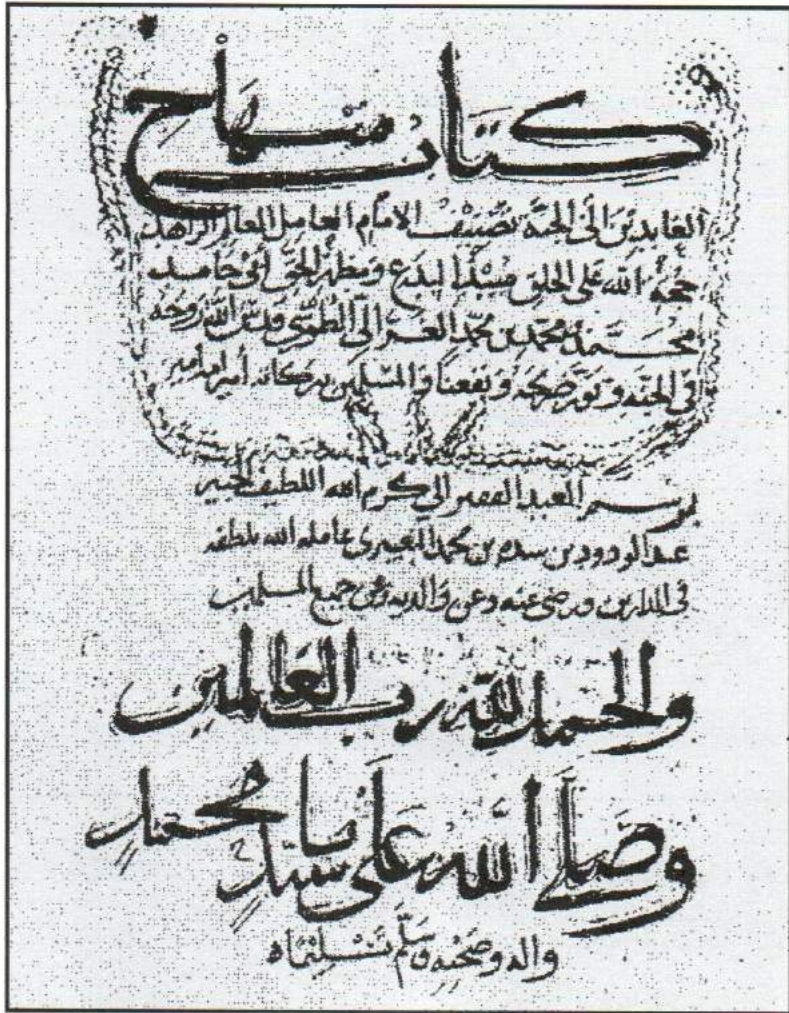 كتاب منهاج
العابدين الى الجنة تصنيف الامام العامل العالم الزاهد
حجة الله على الخلق مبيد البدع ومظهر الحق أبي حامد
محمد بن محمد بن محمد الغزالي الطوسي قدس الله روحه
في الجنة ونور ضريحه ونفعنا والمسلمين ببركاته أمين امين
برسم العبد الفقير الى كرم الله اللطيف الخبير
عبد الودود بن محمد عامله الله بلطفه
في الدارين ورضى عنه وعن والديه وعن جميع المسلمين
والحمد لله رب العالمين
وصلى الله على سيدنا محمد
واله وصحبه وسلم تسليما